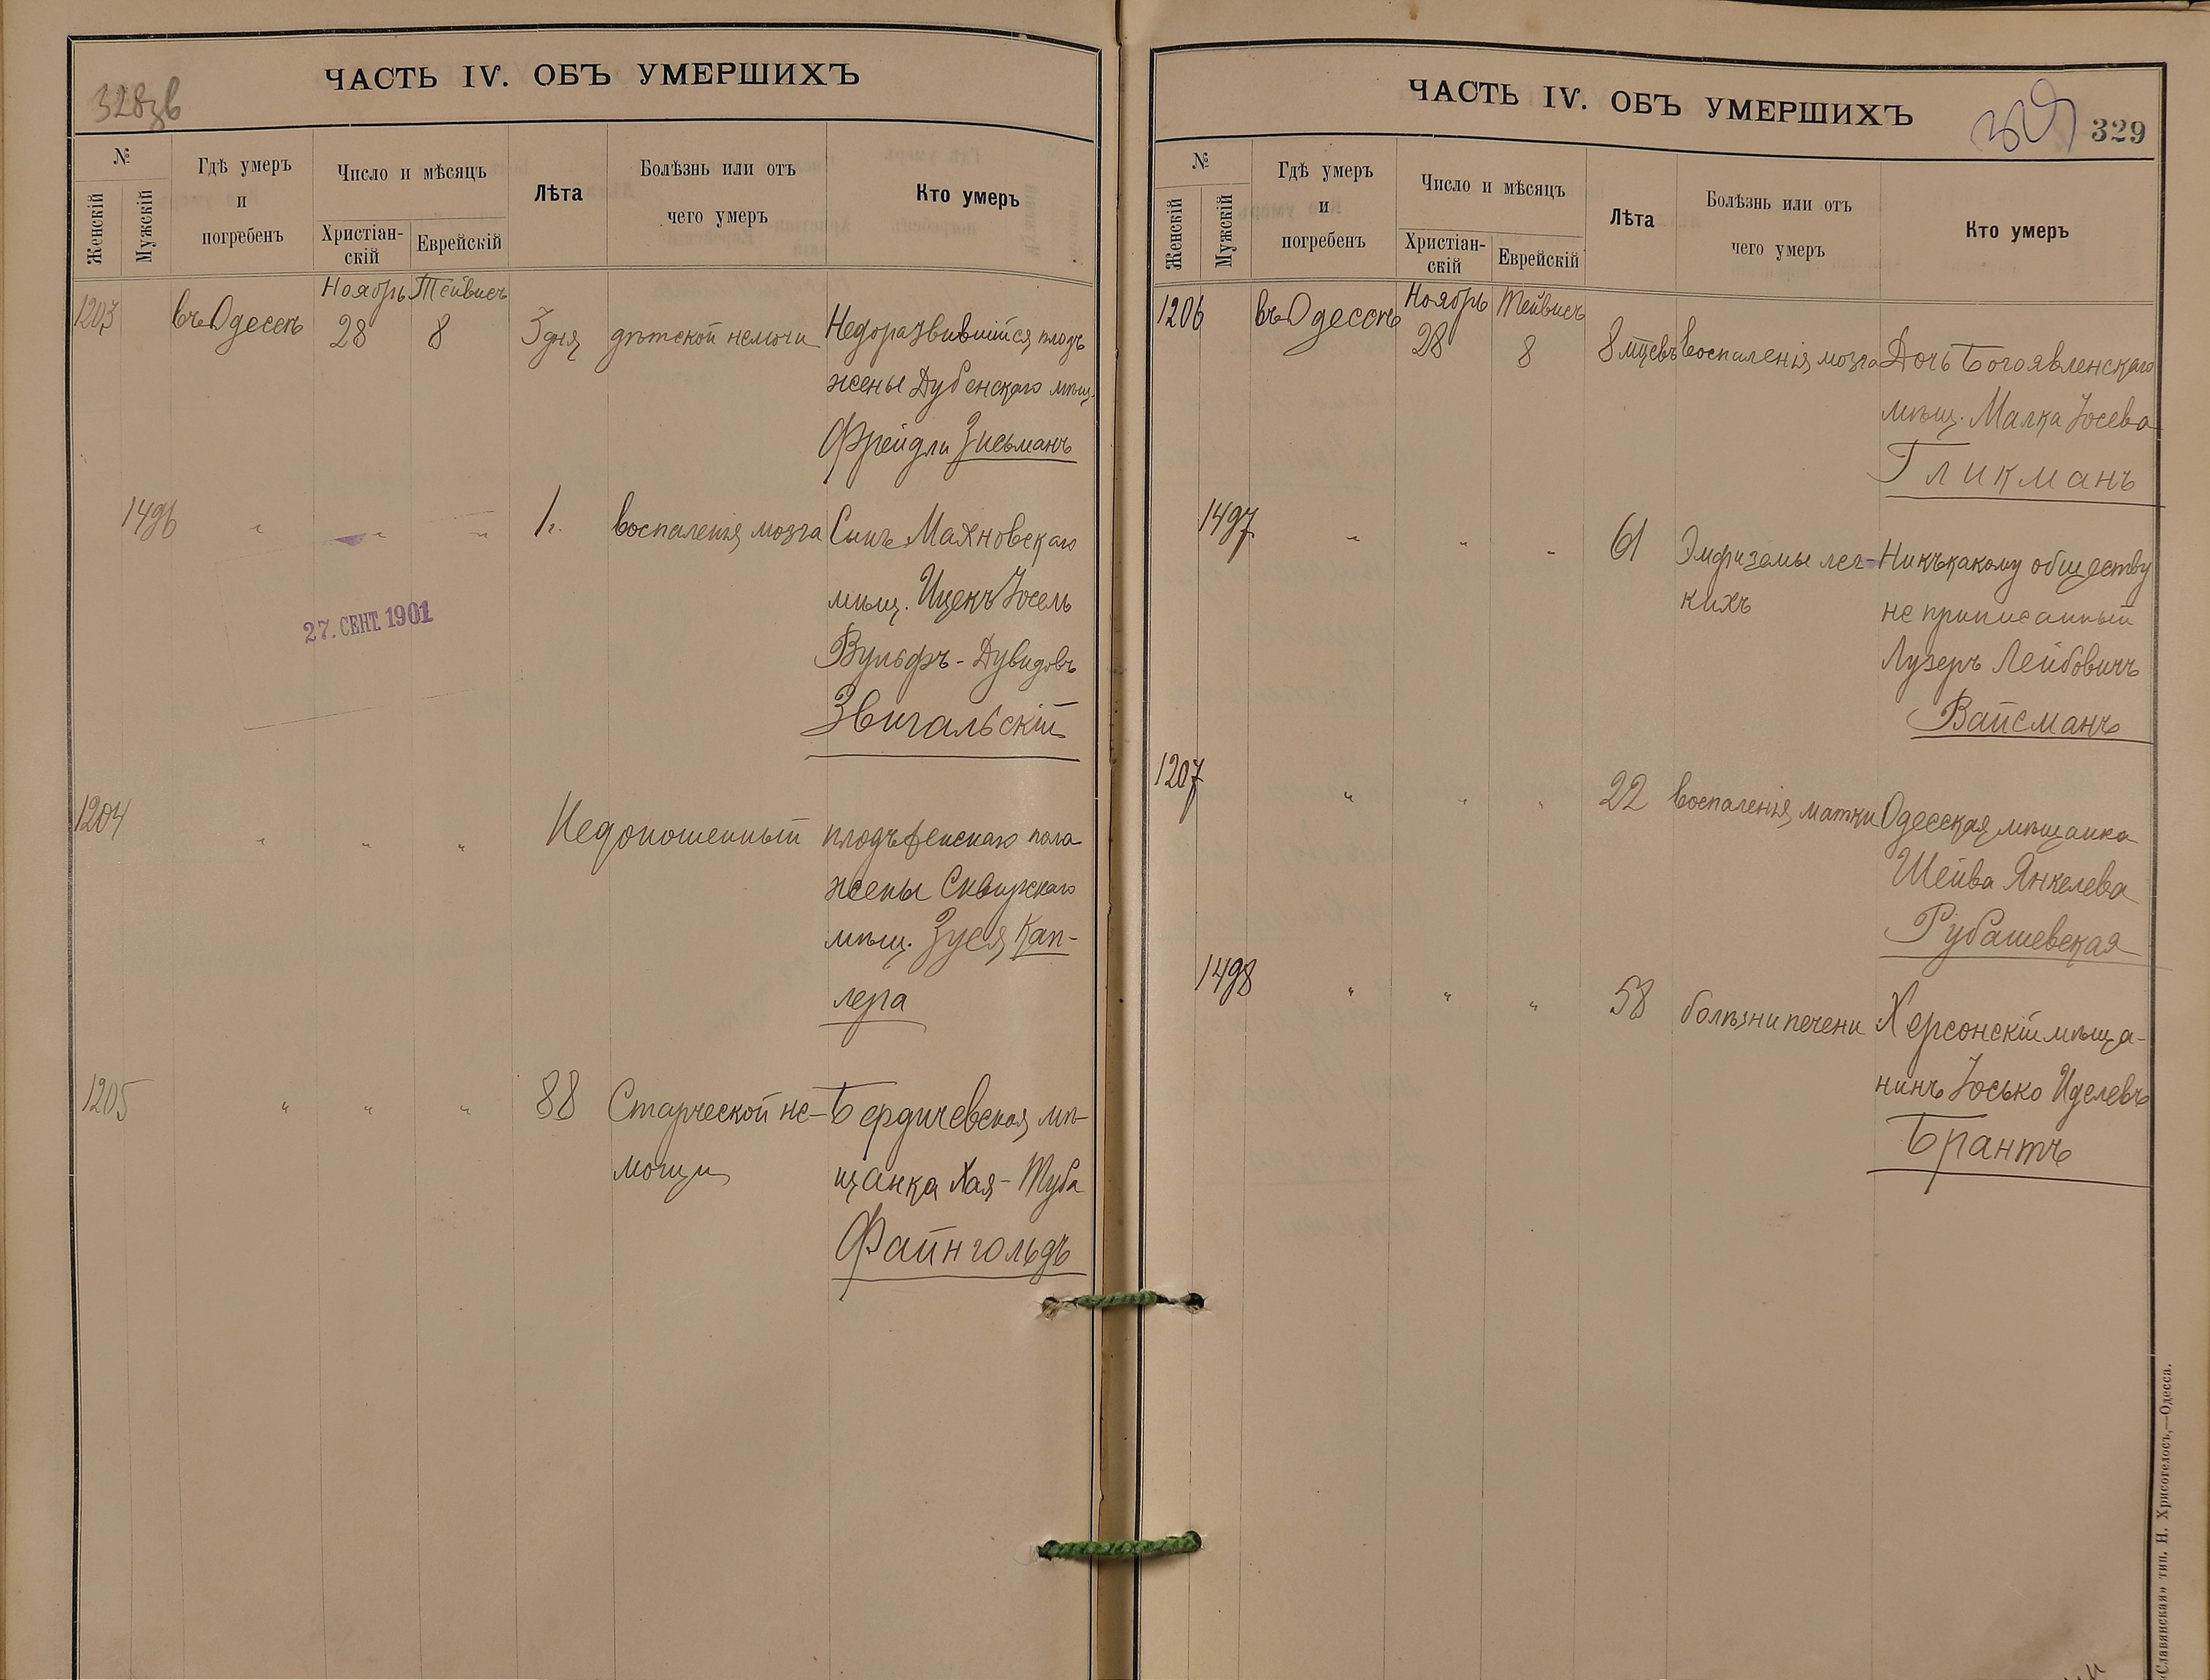 328 зв
ЧАСТЬ IV. ОБЪ УМЕРШИХЪ
№
Женскій
Мужскій
Гдѣ умеръ
и
погребенъ
Число и мѣсяцъ
Христіан-
скій
Еврейскій
Лѣта
Болѣзнь или отъ
чего умеръ
Кто умеръ
Ноябрь Тейвисъ
1203 въ Одессѣ 28 8 3 дня дѣтской немочи Недоразвившійся плодъ
жены Дубенскаго мѣщ.
Фрейдли Зисьманъ
1496 " " " 1 г. воспаленія мозга Сынъ Махновскаго
мѣщ. Ицекъ Іосель
Вульфъ-Дувидовъ
Звигальскій
27. СЕНТ. 1901
1204 " " " Недоношенный плодъ женскаго пола
жены Сквирскаго
мѣщ. Зуся Кап-
лера
1205 " " " 88 Старческой не- Бердичевская мѣ-
мощи щанка Хая-Туба
Файнгольдъ
ЧАСТЬ IV. ОБЪ УМЕРШИХЪ
329
№
Женскій
Мужскій
Гдѣ умеръ
и
погребенъ
Число и мѣсяцъ
Христіан-
скій
Еврейскій
Лѣта
Болѣзнь или отъ
чего умеръ
Кто умеръ
Ноябрь Тейвисъ
1206 въ Одессѣ 28 8 8 мцевъ воспаленія мозга Дочь Богоявленскаго
мѣщ. Малка Іосева
Гликманъ
1497 " " " 61 Эмфиземы лег- Никъкакому обществу
кихъ не приписанный
Лузеръ Лейбовичъ
Вайсманъ
1207 " " " 22 воспаленія матки Одесская мѣщанка
Шейва Янкелева
Рубашевская
1498 " " " 58 болѣзни печени Херсонскій мѣща-
нинъ Іосько Иделевъ
Брантъ
«Славянская» тип. Н. Хрисогелосъ,—Одесса.